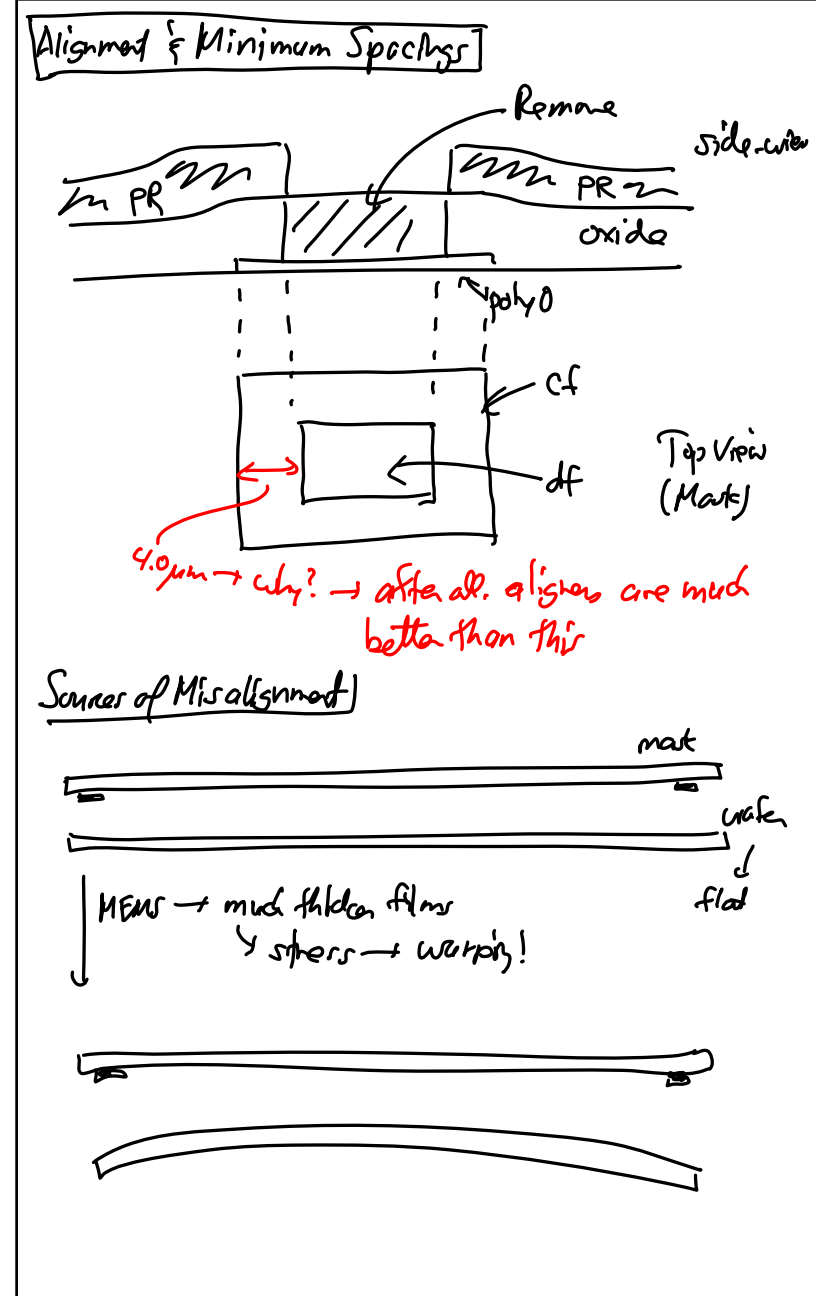 Alignment & Minimum Spacings
Remove
side-view
PR
PR
oxide
poly0
cf
df
Top View
(Mask)
4.0μm → why? → after all, aligners are much
better than this
Sources of Misalignment
mask
wafer
flat
MEMS → much thicker films
↳ stress → warping!